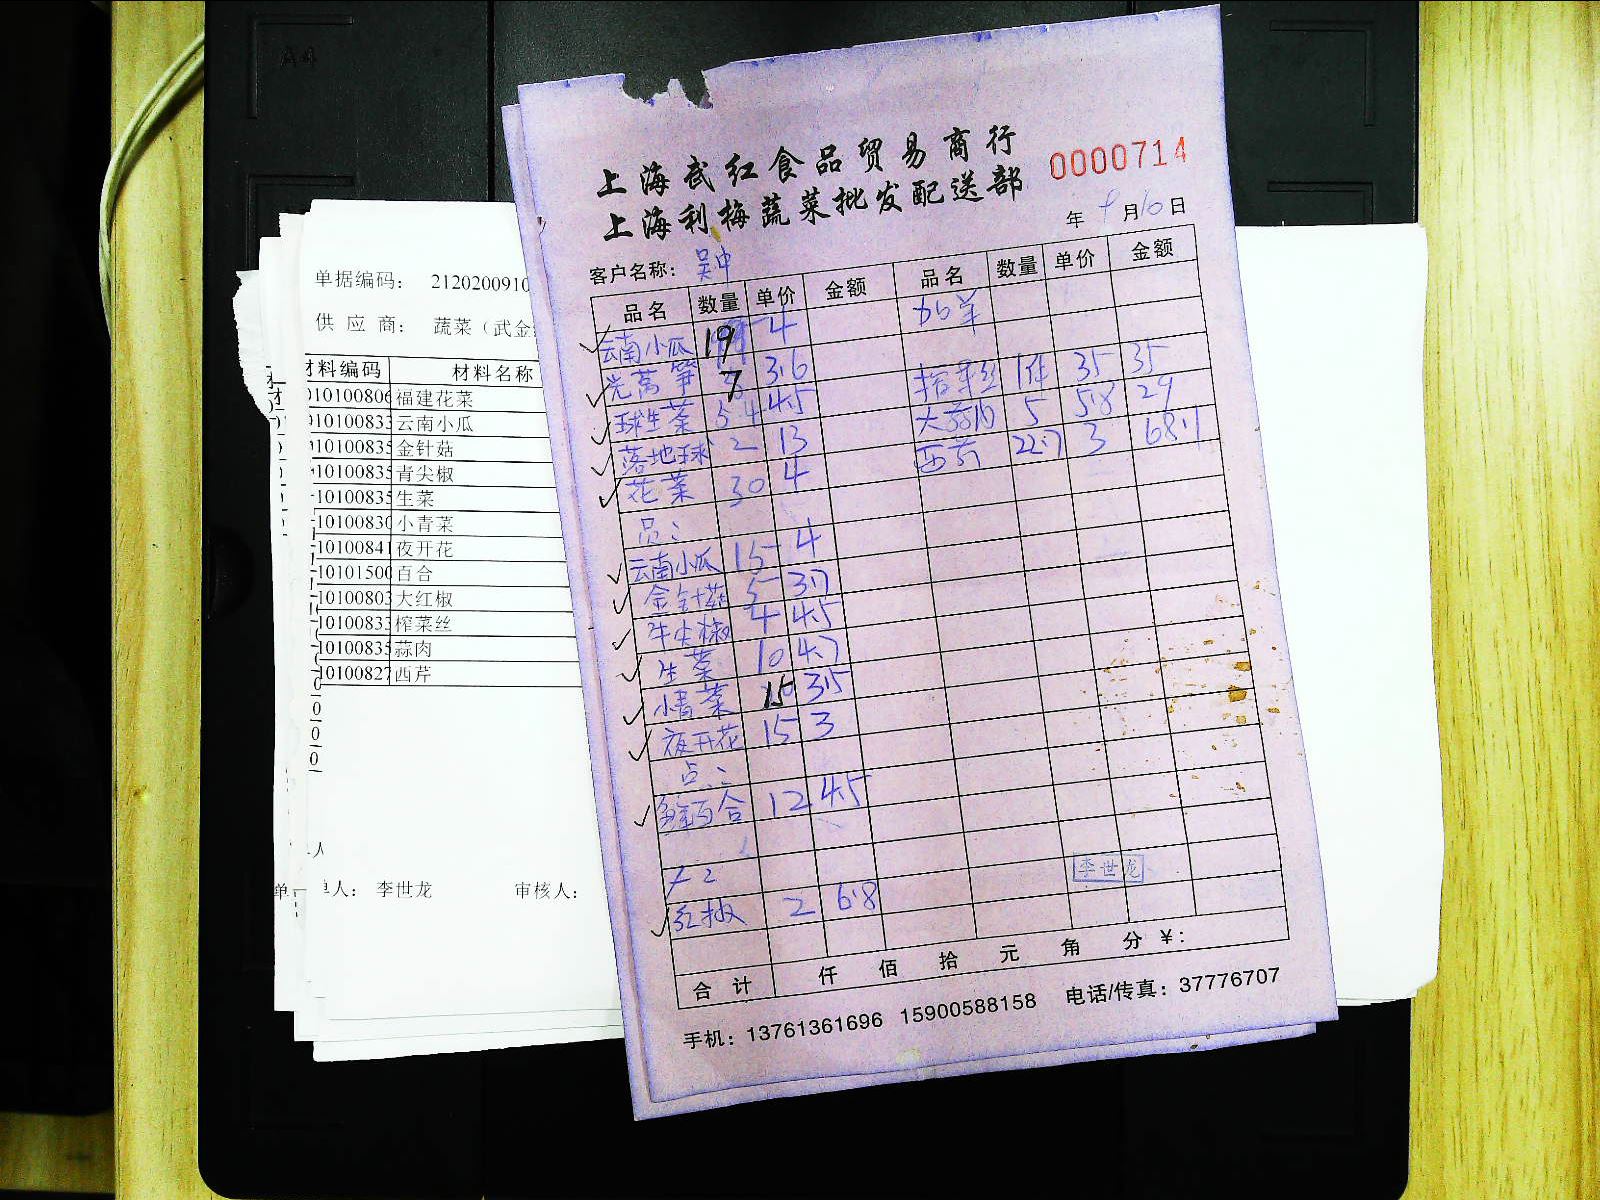 A4
单据编码： 2120200910
供 应 商： 蔬菜（武金
材料编码 材料名称
10100806 福建花菜
10100833 云南小瓜
10100835 金针菇
10100835 青尖椒
10100835 生菜
10100830 小青菜
10100841 夜开花
10101500 百合
10100803 大红椒
10100833 榨菜丝
10100835 蒜肉
10100827 西芹
单人： 李世龙 审核人：
上海武红食品贸易商行
上海利梅蔬菜批发配送部
0000714
年 9 月 10 日
客户名称： 吴中
品名 数量 单价 金额 品名 数量 单价 金额
云南小瓜 19 4 加单
光莴笋 7 3.6
球生菜 5 4.5 榨菜丝 1件 35 35
落地球 2 13 大蒜肉 5 5.8 29
花菜 30 4 西芹 22.7 3 68.1
云南小瓜 15 4
金针菇 5 3.7
牛尖椒 4 4.5
生菜 10 4.7
小青菜 15 3.5
夜开花 15 3
点：
鲜百合 12 4.5
红椒 2 6.8
李世龙
合计 仟 佰 拾 元 角 分 ¥：
手机：13761361696 15900588158 电话/传真：37776707